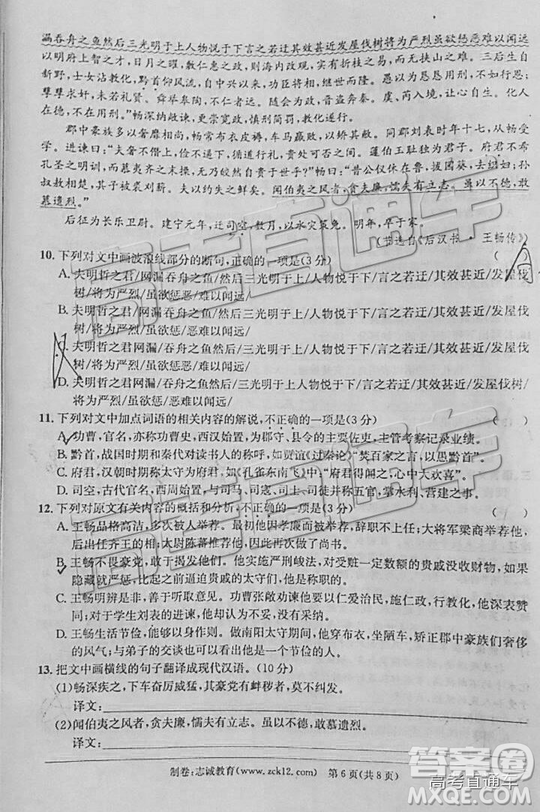 漏吞舟之鱼然后三光明于上人物悦于下言之若迂其效甚近发屋伐树将为严烈虽欲惩恶难以闻远
以明府上智之才，日月之曜，敷仁惠之政，则海内改观，实有折枝之易，而无挟山之难。三后生自
新野，士女沾教化，黔首仰风流，自中兴以来，功臣将相，继世而隆。愚以为恳恳用刑，不如行恩；
孳孳求奸，未若礼贤。舜举皋陶，不仁者远，随会为政，晋盗奔秦。虞、芮入境，让心自生。化人
在德，不在用刑。”畅深纳敕谏，更崇宽政，慎刑简罚，教化遂行。
郡中豪族多以奢靡相尚，畅常布衣皮褥，车马羸败，以矫其敝。同郡刘表时年十七，从畅受
学。进谏曰：“夫奢不僭上，俭不逼下，循道行礼，贵处可否之间。蘧伯玉耻独为君子。府君不希
孔圣之明训，而慕夷齐之末操，无乃皎然自贵于世乎？”畅曰：“昔公仪休在鲁，拔园葵，去织妇；孙
叔敖相楚，其子被裘刈薪。夫以约失之鲜矣。闻伯夷之风者，贪夫廉，懦夫有立志。虽以不德，敢
慕遗烈。”
后征为长乐卫尉。建宁元年，迁司空，数月，以水灾策免。明年，卒于家。
(节选自《后汉书·王畅传》)
10. 下列对文中画波浪线部分的断句，正确的一项是(3分) ( )
A. 夫明哲之君/网漏/吞舟之鱼/然后/三光明于上/人物悦于下/言之若迂/其效甚近/发屋伐
树/将为严烈/虽欲惩恶/难以闻远/
B. 夫明哲之君/网漏吞舟之鱼/然后/三光明于上/人物悦于下/言之若迂/其效甚近/发屋伐
树/将为严烈/虽欲惩恶/难以闻远/
C. 夫明哲之君网漏/吞舟之鱼然后/三光明于上/人物悦于下/言之若迂/其效甚近/发屋伐
树/将为严烈/虽欲惩/恶难以闻远/
D. 夫明哲之君网漏/吞舟之鱼然后/三光明于上/人物悦于下/言之若迂/其效甚近/发屋伐树/
将为严烈/虽欲惩恶/难以闻远/
11. 下列对文中加点词语的相关内容的解说，不正确的一项是(3分) ( )
A. 功曹，官名，亦称功曹史，西汉始置，为郡守、县令的主要佐吏，主管考察记录业绩。
B. 黔首，战国时期和秦代对百姓的称呼，如贾谊《过秦论》“焚百家之言，以愚黔首”。
C. 府君，汉代时期称太守为府君，如《孔雀东南飞》中“府君得闻之，心中大欢喜”。
D. 司空，古代官名，西周始置，与司马、司寇、司士、司徒并称五官，掌水利、营建之事。
12. 下列对原文有关内容的概括和分析，不正确的一项是(3分) ( )
A. 王畅品格高洁，多次被人举荐。最初他因为清廉被举荐，辞职不上任。大将军梁商举荐他，
后出任齐王相。太尉陈蕃推荐他，因此再次担任尚书。
B. 王畅不畏豪党，敢于发掘他们。他实施严刑峻法，对收受一定数额的贵戚没收财物，如果
隐藏就严惩，因此成为威震贵戚的太守们，他是称职的。
C. 王畅明辨是非，善于听取意见。功曹张敞劝谏他要以仁爱治民，以德育人，他接受谏言。
对于学生刘表的进谏，他却认为不妥，没有采纳。
D. 王畅生活节俭，能够以身作则。做南阳太守期间，他使用粗布衣，坐陋车，矫正郡中豪族的
风气；与弟子的对答交流可以看出他志存高远。
13. 把文中画横线的句子翻译成现代汉语。(10分)
(1)畅深疾之，下车奋厉威猛，其豪党有衅秽者，莫不纠发。
译文：
(2)闻伯夷之风者，贪夫廉，懦夫有立志。虽以不德，敢慕遗烈。
译文：
制卷：志诚教育(www.zck12.com) 第6页(共8页)
高考直通车
答案圈
MXQE.COM
高考直通车